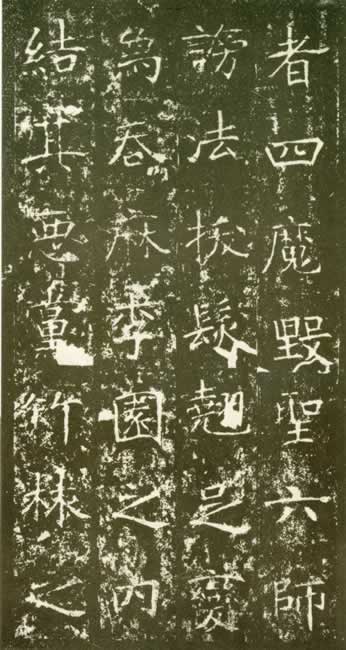 者四魔毀聖六師
謗法拔髮翹足變
為吞麻李園之內
結其惡黨竹林之